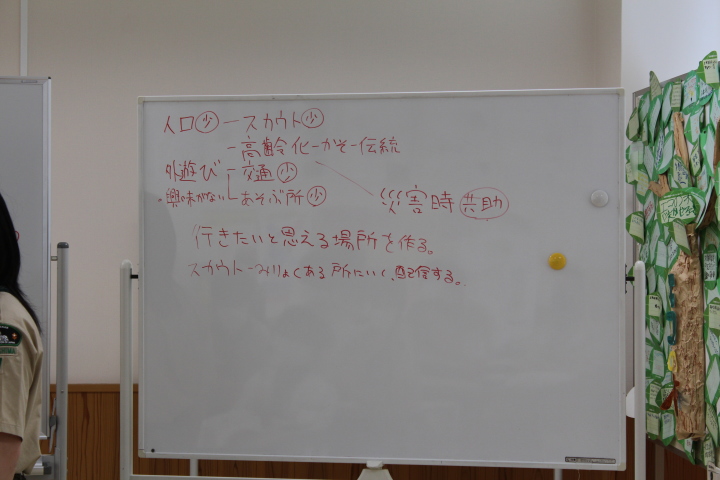 人口 少 ースカウト 少
ー高齢化ーかそー伝統
外遊びー交通 少
・興味がない あそぶ所 少
災害時 共助
行きたいと思える場所を作る。
スカウトーみりょくある所にいく、配信する。